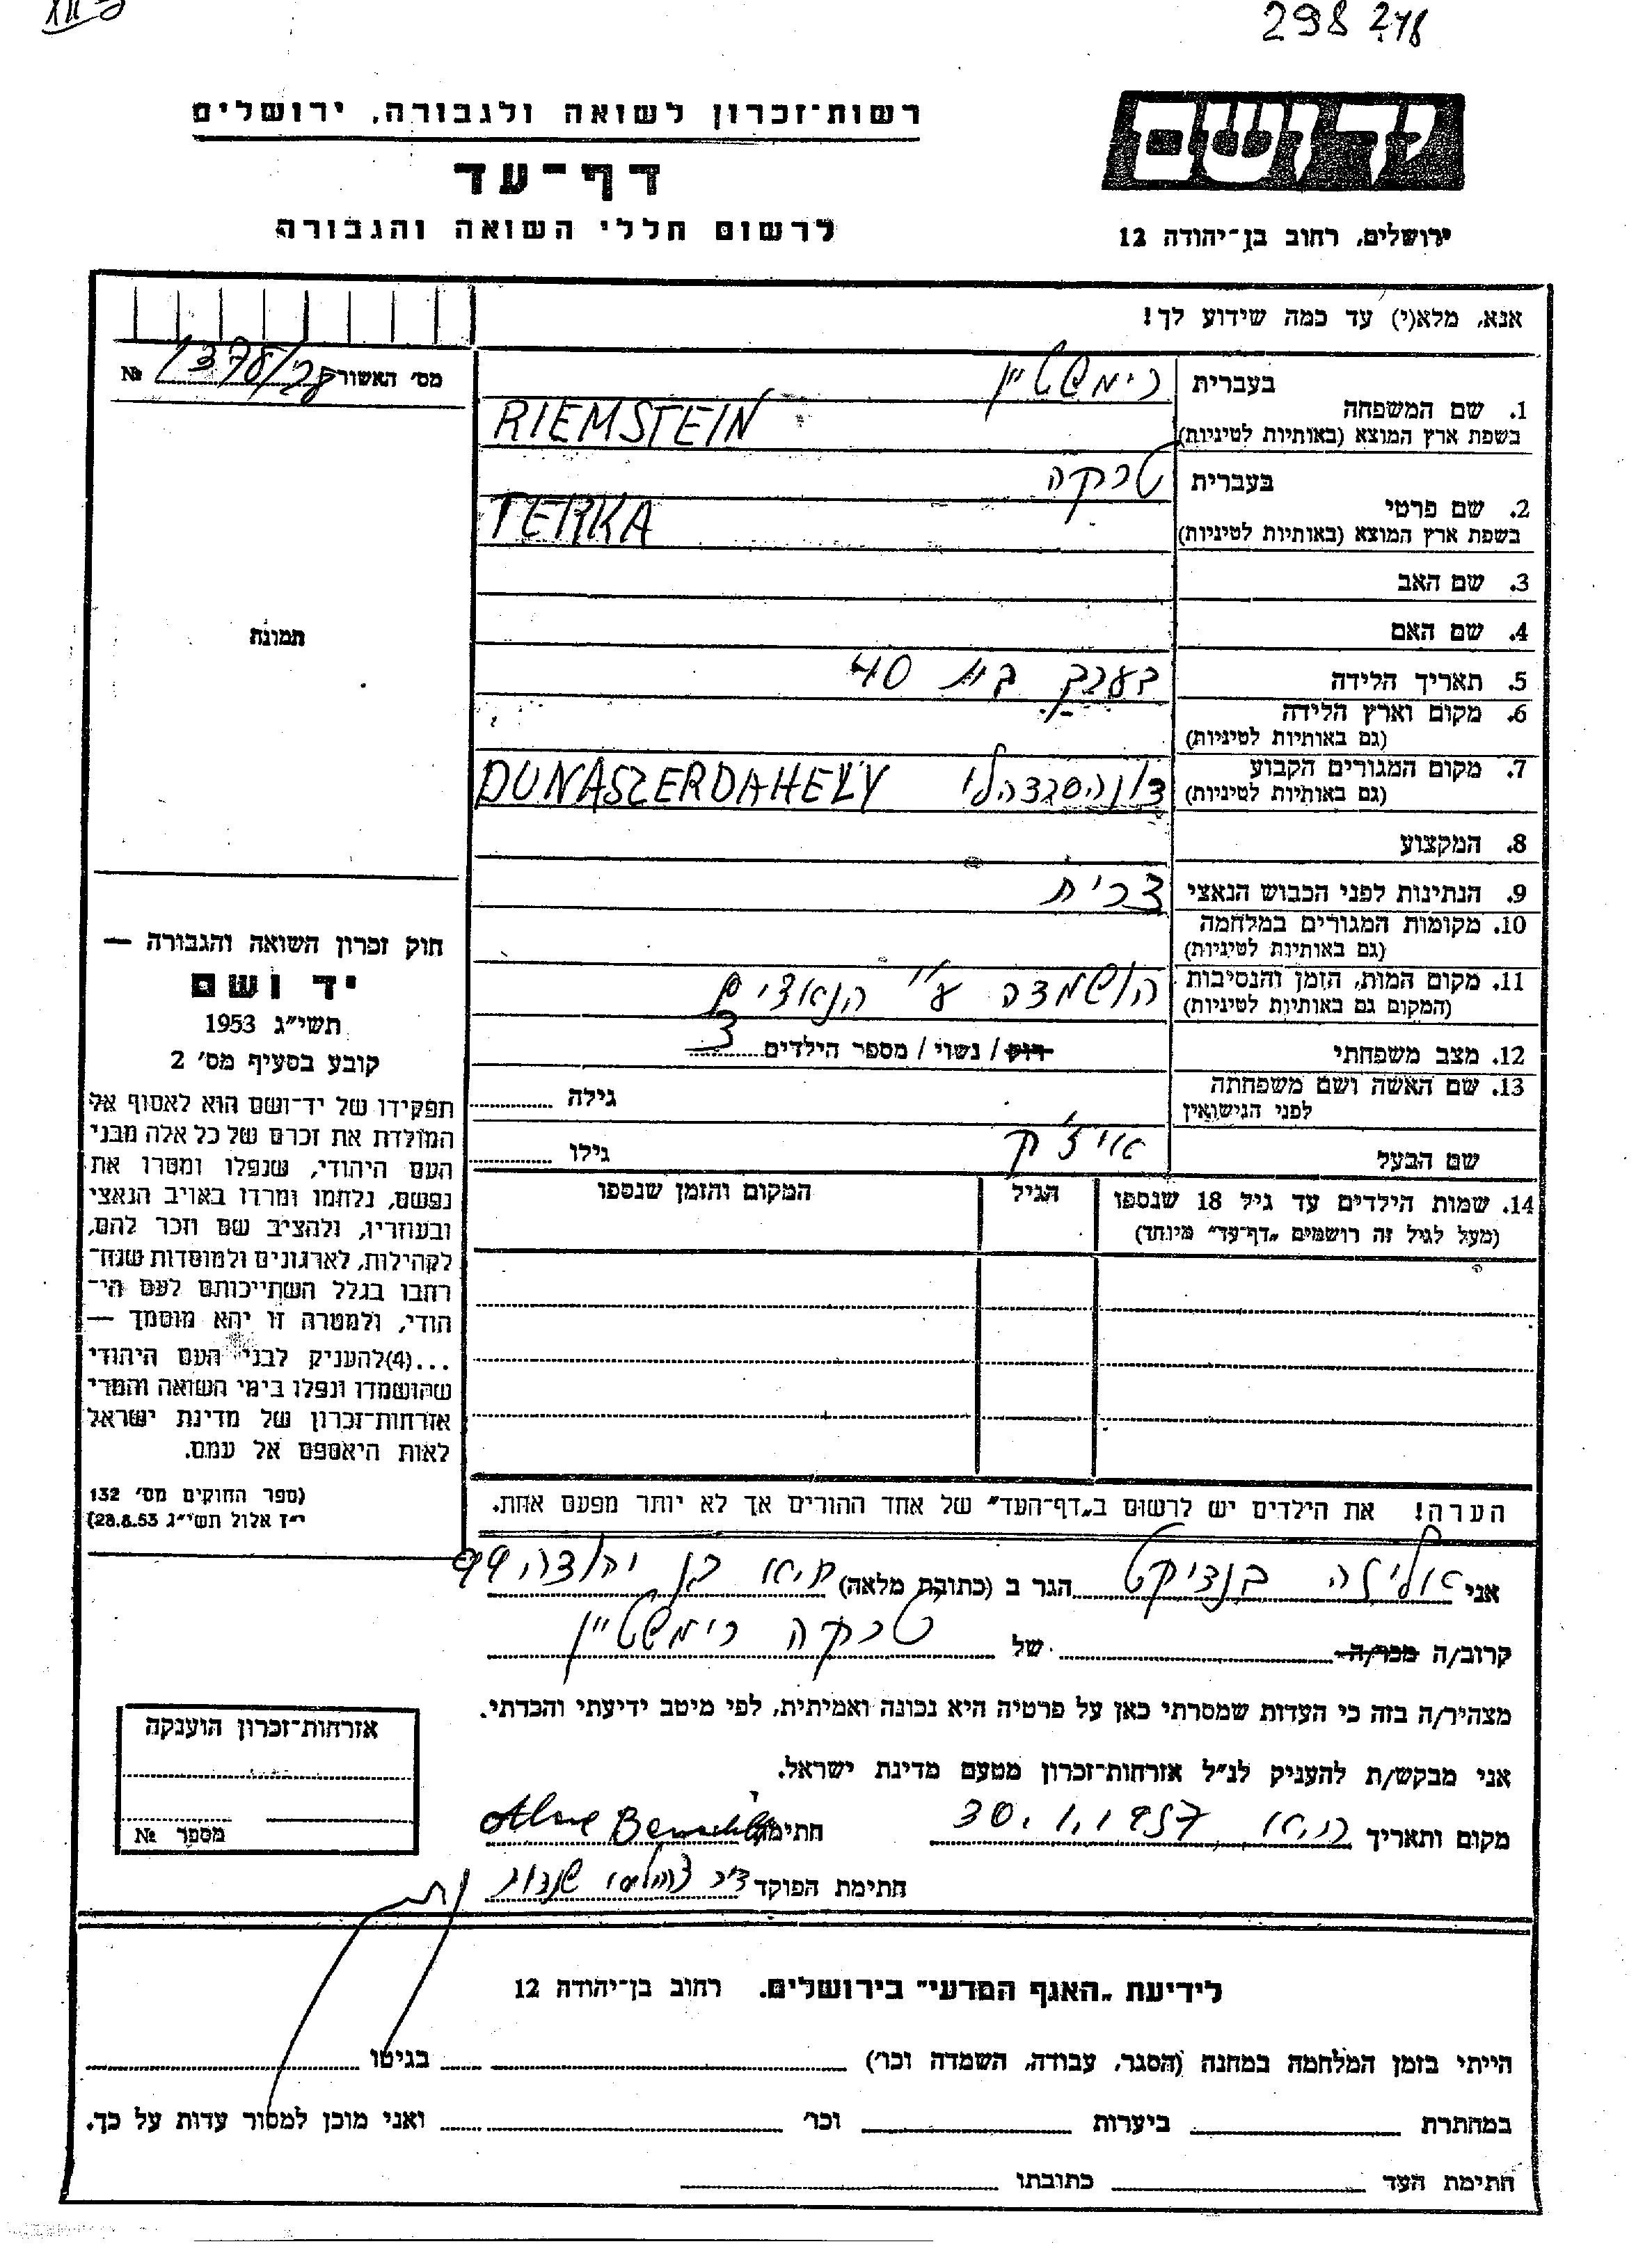 298 248
רשות־זכרון לשואה ולגבורה, ירושלים
יד ושם
דף־עד
לרשום חללי השואה והגבורה
ירושלים, רחוב בן־יהודה 12
אנא, מלא(י) עד כמה שידוע לך!
מס׳ האשור 1378/28 №
1. שם המשפחה בעברית רימשטיין
בשפת ארץ המוצא (באותיות לטיניות) RIEMSTEIN
2. שם פרטי בעברית טרקה
בשפת ארץ המוצא (באותיות לטיניות) TERKA
3. שם האב
4. שם האם
תמונה
5. תאריך הלידה בערך בת 40
6. מקום וארץ הלידה
(גם באותיות לטיניות)
7. מקום המגורים הקבוע דונהסרדהלי DUNASZERDAHELY
(גם באותיות לטיניות)
8. המקצוע
9. הנתינות לפני הכבוש הנאצי
10. מקומות המגורים במלחמה
(גם באותיות לטיניות)
11. מקום המות, הזמן והנסיבות הושמדה ע״י הנאצים
(המקום גם באותיות לטיניות)
12. מצב משפחתי רוק / נשוי / מספר הילדים 3
13. שם האשה ושם משפחתה גילה
לפני הנישואין
שם הבעל אייז׳ק גילו
14. שמות הילדים עד גיל 18 שנספו הגיל המקום והזמן שנספו
(מעל לגיל זה רושמים „דף־עד״ מיוחד)
חוק זכרון השואה והגבורה —
יד ושם
תשי״ג 1953
קובע בסעיף מס׳ 2
תפקידו של יד־ושם הוא לאסוף אל
המולדת את זכרם של כל אלה מבני
העם היהודי, שנפלו ומסרו את
נפשם, נלחמו ומרדו באויב הנאצי
ובעוזריו, ולהציב שם וזכר להם,
לקהילות, לארגונים ולמוסדות שנח־
רחבו בגלל השתייכותם לעם הי־
הודי, ולמטרה זו יהא מוסמך —
...(4)להעניק לבני העם היהודי
שהושמדו ונפלו בימי השואה והמרי
אזרחות־זכרון של מדינת ישראל
לאות היאספם אל עמם.
(ספר החוקים מס׳ 132
י״ז אלול תשי״ג 28.8.53)
הערה! את הילדים יש לרשום ב„דף־העד״ של אחד ההורים אך לא יותר מפעם אחת.
אני אלילה בנדיקט הגר ב (כתובת מלאה) ת״א בן יהודה 99
קרוב/ה מכר/ה של טרקה רימשטיין
מצהיר/ה בזה כי העדות שמסרתי כאן על פרטיה היא נכונה ואמיתית, לפי מיטב ידיעתי והכרתי.
אני מבקש/ת להעניק לנ״ל אזרחות־זכרון מטעם מדינת ישראל.
מקום ותאריך ת״א 30.1.1957 חתימה
חתימת הפוקד
אזרחות־זכרון הוענקה
מספר №
לידיעת „האגף המדעי״ בירושלים. רחוב בן־יהודה 12
הייתי בזמן המלחמה במחנה (הסגר, עבודה, השמדה וכר׳) בגיטו
במחתרת ביערות וכר׳ ואני מוכן למסור עדות על כך.
חתימת העד כתובתו